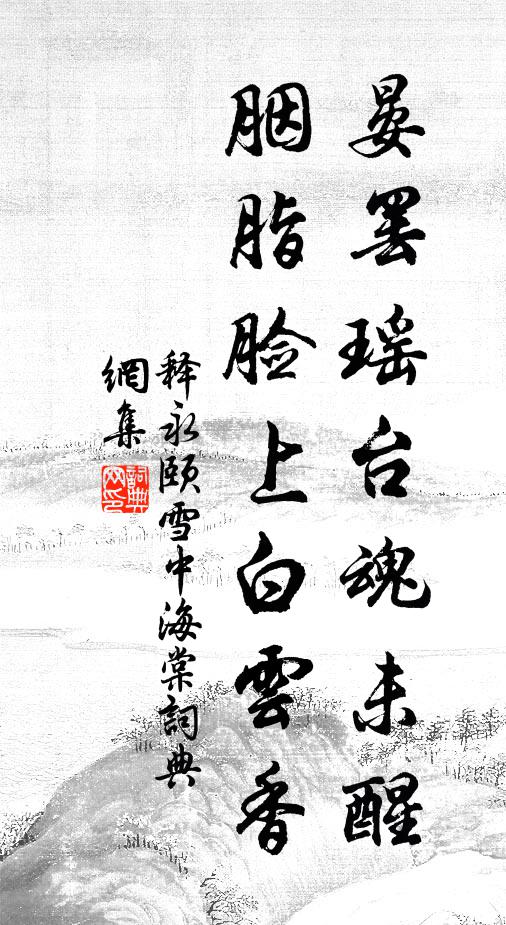 晏罢瑶台魂未醒
胭脂脸上白雲香
释永颐雪中海棠詞典
網集
詞典
网印